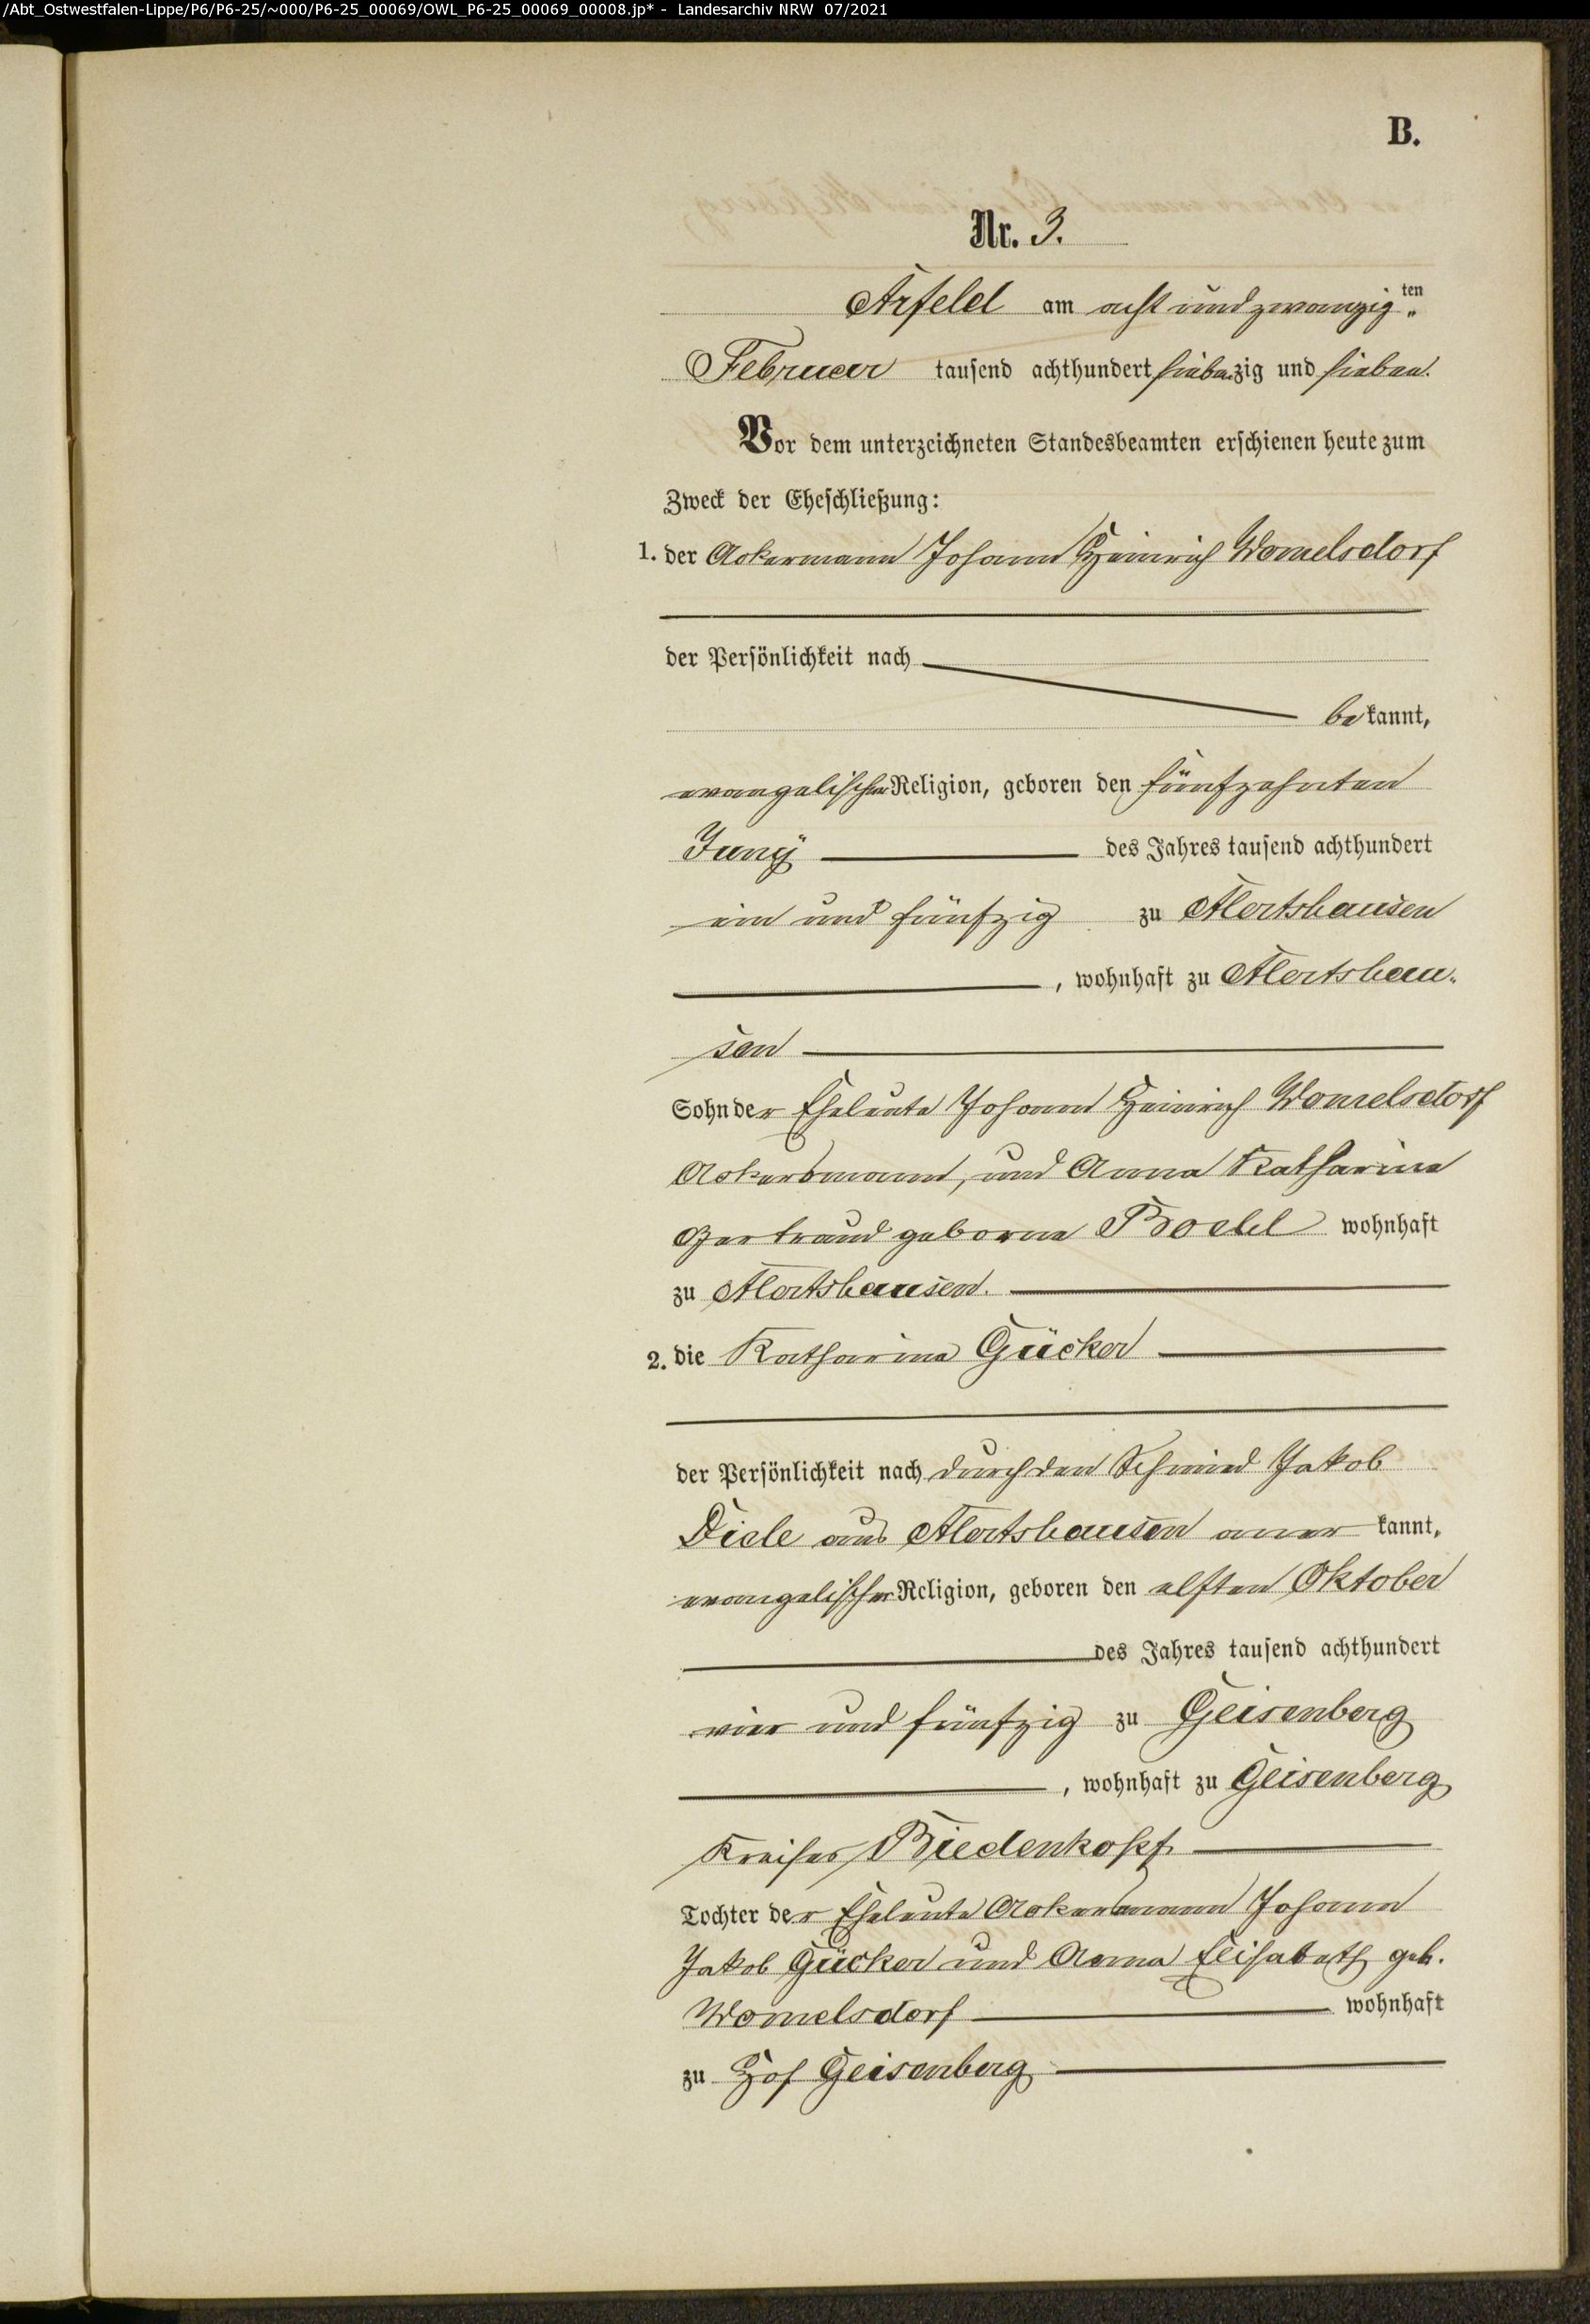 /Abt_Ostwestfalen-Lippe/P6/P6-25/~000/P6-25_00069/OWL_P6-25_00069_00008.jp* - Landesarchiv NRW 07/2021
B.
Nr. 3.
Arfeld am acht und zwanzig ten
Februar tausend achthundert siebenzig und sieben.
Vor dem unterzeichneten Standesbeamten erschienen heute zum
Zweck der Eheschließung:
1. der Ackermann Johann Heinrich Womelsdorf
der Persönlichkeit nach
bekannt,
evangelischer Religion, geboren den fünfzehnten
Juny des Jahres tausend achthundert
ein und fünfzig zu Alertshausen
, wohnhaft zu Alertshau-
sen
Sohn der Eheleute Johann Heinrich Womelsdorf
Ackersmann, und Anna Katharine
Gertraud geborne wohnhaft
zu Alertshausen.
2. die Katharina Gücker
der Persönlichkeit nach durch den Schmied Jakob
Diele aus Alertshausen anerkannt,
evangelischer Religion, geboren den elften Oktober
des Jahres tausend achthundert
vier und fünfzig zu Geisenberg
, wohnhaft zu Geisenberg
Kreises Biedenkopf
Tochter der Eheleute Ackersmann Johann
Jakob Gücker und Anna Elisabeth geb.
Womelsdorf wohnhaft
zu Hof Geisenberg